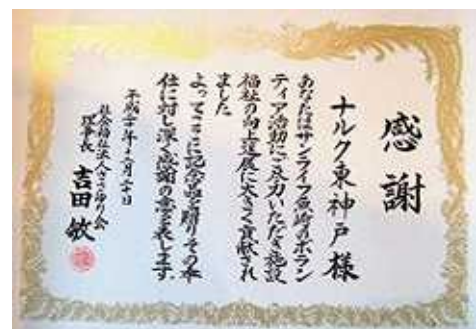 感謝
ナルク東神戸様
あなたはサンライフ魚崎のボラン
ティア活動にご尽力いただき施設
福祉の向上進展に大きく貢献され
ました
よってここに記念品を贈りその奉
仕に対し深く感謝の意を表します
社会福祉法人ささゆり会
理事長 吉田 敏